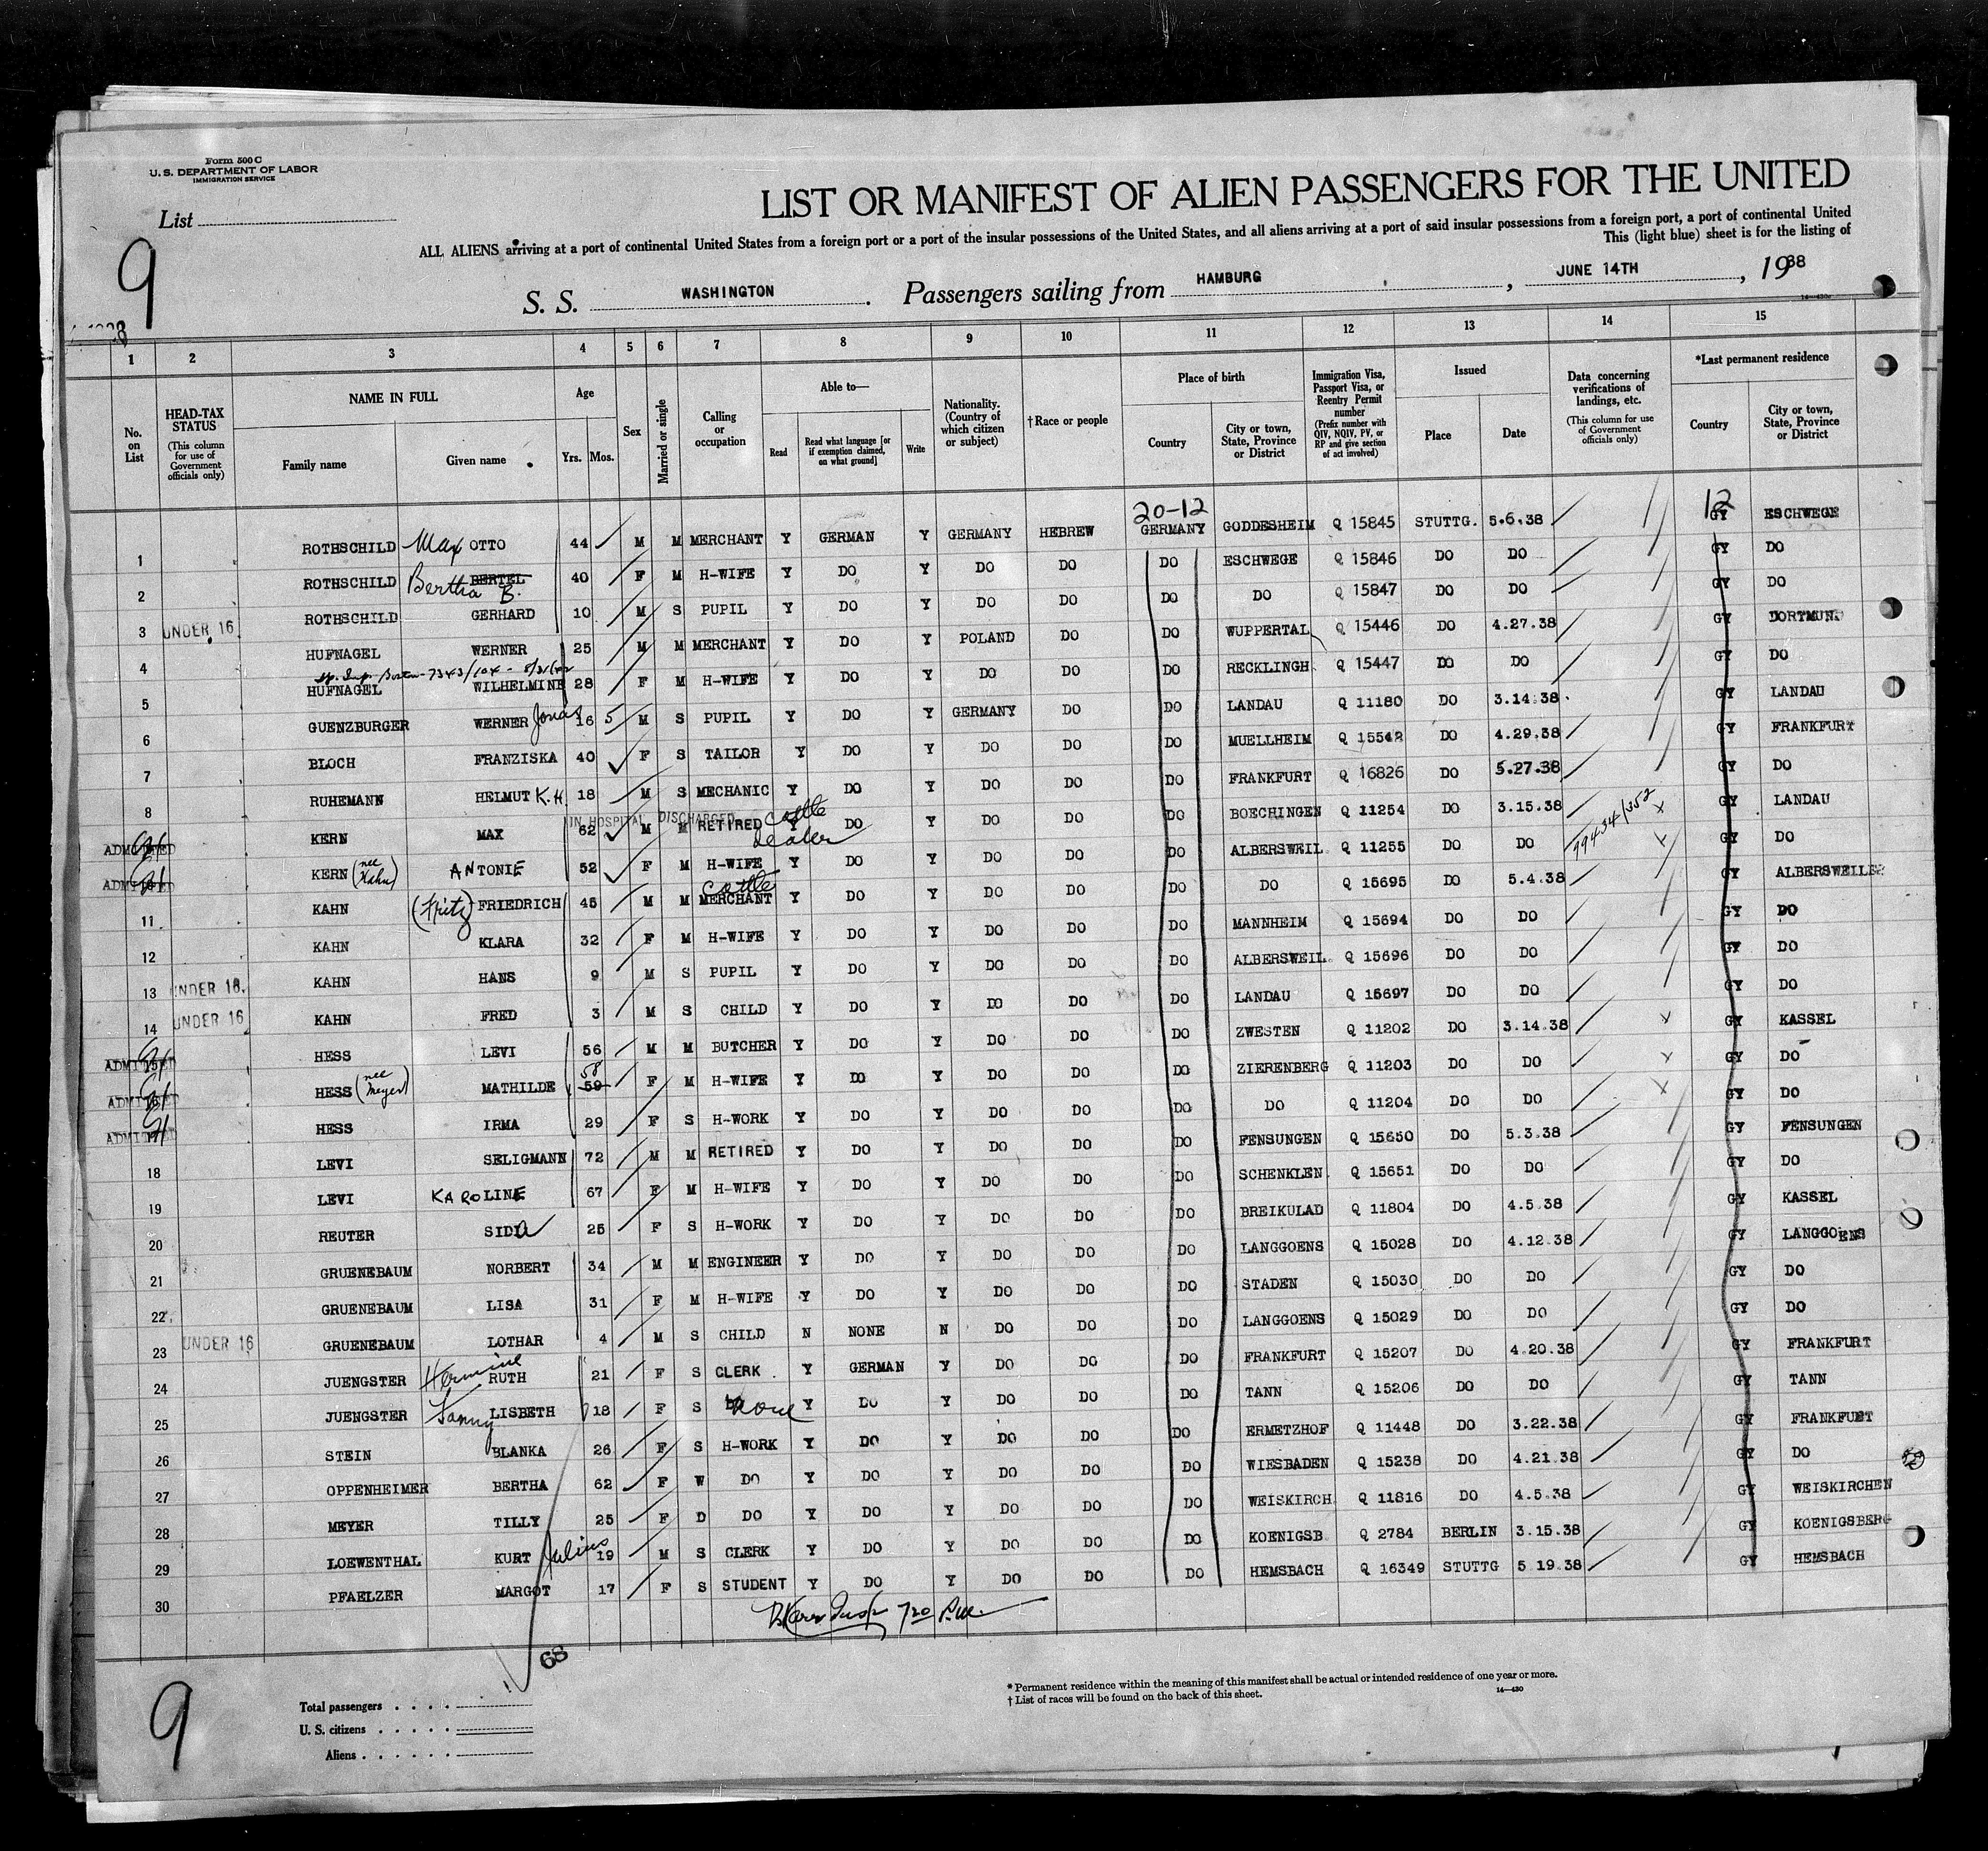 Form 500 C
U. S. DEPARTMENT OF LABOR
IMMIGRATION SERVICE
List
9
LIST OR MANIFEST OF ALIEN PASSENGERS FOR THE UNITED
ALL ALIENS arriving at a port of continental United States from a foreign port or a port of the insular possessions of the United States, and all aliens arriving at a port of said insular possessions from a foreign port, a port of continental United
This (light blue) sheet is for the listing of
S. S. WASHINGTON . Passengers sailing from HAMBURG , JUNE 14TH , 1938
14—430
1 2 3 4 5 6 7 8 9 10 11 12 13 14 15
No. on List
HEAD-TAX STATUS (This column for use of Government officials only)
NAME IN FULL
Family name Given name
Age
Yrs. Mos.
Sex
Married or single
Calling or occupation
Able to—
Read Read what language [or if exemption claimed, on what ground] Write
Nationality. (Country of which citizen or subject)
†Race or people
Place of birth
Country City or town, State, Province or District
Immigration Visa, Passport Visa, or Reentry Permit number (Prefix number with QIV, NQIV, PV, or RP and give section of act involved)
Issued
Place Date
Data concerning verifications of landings, etc. (This column for use of Government officials only)
*Last permanent residence
Country City or town, State, Province or District
20-12 12
1 ROTHSCHILD Max OTTO 44 M M MERCHANT Y GERMAN Y GERMANY HEBREW GERMANY GODDESHEIM Q 15845 STUTTG. 5.6.38 GY ESCHWEGE
2 ROTHSCHILD BERTEL Bertha B. 40 F M H-WIFE Y DO Y DO DO DO ESCHWEGE Q 15846 DO DO GY DO
3 UNDER 16 ROTHSCHILD GERHARD 10 M S PUPIL Y DO Y DO DO DO DO Q 15847 DO DO GY DO
4 HUFNAGEL WERNER 25 M M MERCHANT Y DO Y POLAND DO DO WUPPERTAL Q 15446 DO 4.27.38 GY DORTMUN.
5 HUFNAGEL WILHELMINE 28 F M H-WIFE Y DO Y DO DO DO RECKLINGH. Q 15447 DO DO GY DO
6 GUENZBURGER WERNER Jonas 16 5 M S PUPIL Y DO Y GERMANY DO DO LANDAU Q 11180 DO 3.14.38. GY LANDAU
7 BLOCH FRANZISKA 40 F S TAILOR Y DO Y DO DO DO MUELLHEIM Q 15542 DO 4.29.38 GY FRANKFURT
8 RUHEMANN HELMUT K.H. 18 M S MECHANIC Y DO Y DO DO DO FRANKFURT Q 16826 DO 5.27.38 GY DO
IN HOSPITAL DISCHARGED
ADMITTED KERN MAX 62 M M RETIRED cattle dealer Y DO Y DO DO DO BOECHINGEN Q 11254 DO 3.15.38 99434/352 X GY LANDAU
ADMITTED KERN (nee Kahn) ANTONIE 52 F M H-WIFE Y DO Y DO DO DO ALBERSWEIL Q 11255 DO DO X GY DO
11 KAHN (Fritz) FRIEDRICH 45 M M cattle MERCHANT Y DO Y DO DO DO DO Q 15695 DO 5.4.38 GY ALBERSWEILER
12 KAHN KLARA 32 F M H-WIFE Y DO Y DO DO DO MANNHEIM Q 15694 DO DO GY DO
13 UNDER 16. KAHN HANS 9 M S PUPIL Y DO Y DO DO DO ALBERSWEIL. Q 15696 DO DO GY DO
14 UNDER 16 KAHN FRED 3 M S CHILD Y DO Y DO DO DO LANDAU Q 15697 DO DO GY DO
ADMITTED HESS LEVI 56 M M BUTCHER Y DO Y DO DO DO ZWESTEN Q 11202 DO 3.14.38 X GY KASSEL
ADMITTED HESS (nee Meyer) MATHILDE 59 58 F M H-WIFE Y DO Y DO DO DO ZIERENBERG Q 11203 DO DO X GY DO
ADMITTED HESS IRMA 29 F S H-WORK Y DO Y DO DO DO DO Q 11204 DO DO X GY DO
18 LEVI SELIGMANN 72 M M RETIRED Y DO Y DO DO DO FENSUNGEN Q 15650 DO 5.3.38 GY FENSUNGEN
19 LEVI KAROLINE 67 F M H-WIFE Y DO Y DO DO DO SCHENKLEN Q 15651 DO DO GY DO
20 REUTER SIDA 25 F S H-WORK Y DO Y DO DO DO BREIKULAD Q 11804 DO 4.5.38 GY KASSEL
21 GRUENEBAUM NORBERT 34 M M ENGINEER Y DO Y DO DO DO LANGGOENS Q 15028 DO 4.12.38 GY LANGGOENS
22 GRUENEBAUM LISA 31 F M H-WIFE Y DO Y DO DO DO STADEN Q 15030 DO DO GY DO
23 UNDER 16 GRUENEBAUM LOTHAR 4 M S CHILD N NONE N DO DO DO LANGGOENS Q 15029 DO DO GY DO
24 JUENGSTER Hermine RUTH 21 F S CLERK Y GERMAN Y DO DO DO FRANKFURT Q 15207 DO 4.20.38 GY FRANKFURT
25 JUENGSTER Fanny LISBETH 18 F S none Y DO Y DO DO DO TANN Q 15206 DO DO GY TANN
26 STEIN BLANKA 26 F S H-WORK Y DO Y DO DO DO ERMETZHOF Q 11448 DO 3.22.38 GY FRANKFURT
27 OPPENHEIMER BERTHA 62 F W DO Y DO Y DO DO DO WIESBADEN Q 15238 DO 4.21.38 GY DO
28 MEYER TILLY 25 F D DO Y DO Y DO DO DO WEISKIRCH. Q 11816 DO 4.5.38 GY WEISKIRCHEN
29 LOEWENTHAL KURT Julius 19 M S CLERK Y DO Y DO DO DO KOENIGSB. Q 2784 BERLIN 3.15.38 GY KOENIGSBERG
30 PFAELZER MARGOT 17 F S STUDENT Y DO Y DO DO DO HEMSBACH Q 16349 STUTTG 5.19.38 GY HEMSBACH
68
9
Total passengers . . . .
U. S. citizens . . . . .
Aliens . . . . . .
* Permanent residence within the meaning of this manifest shall be actual or intended residence of one year or more.
† List of races will be found on the back of this sheet.
14—430